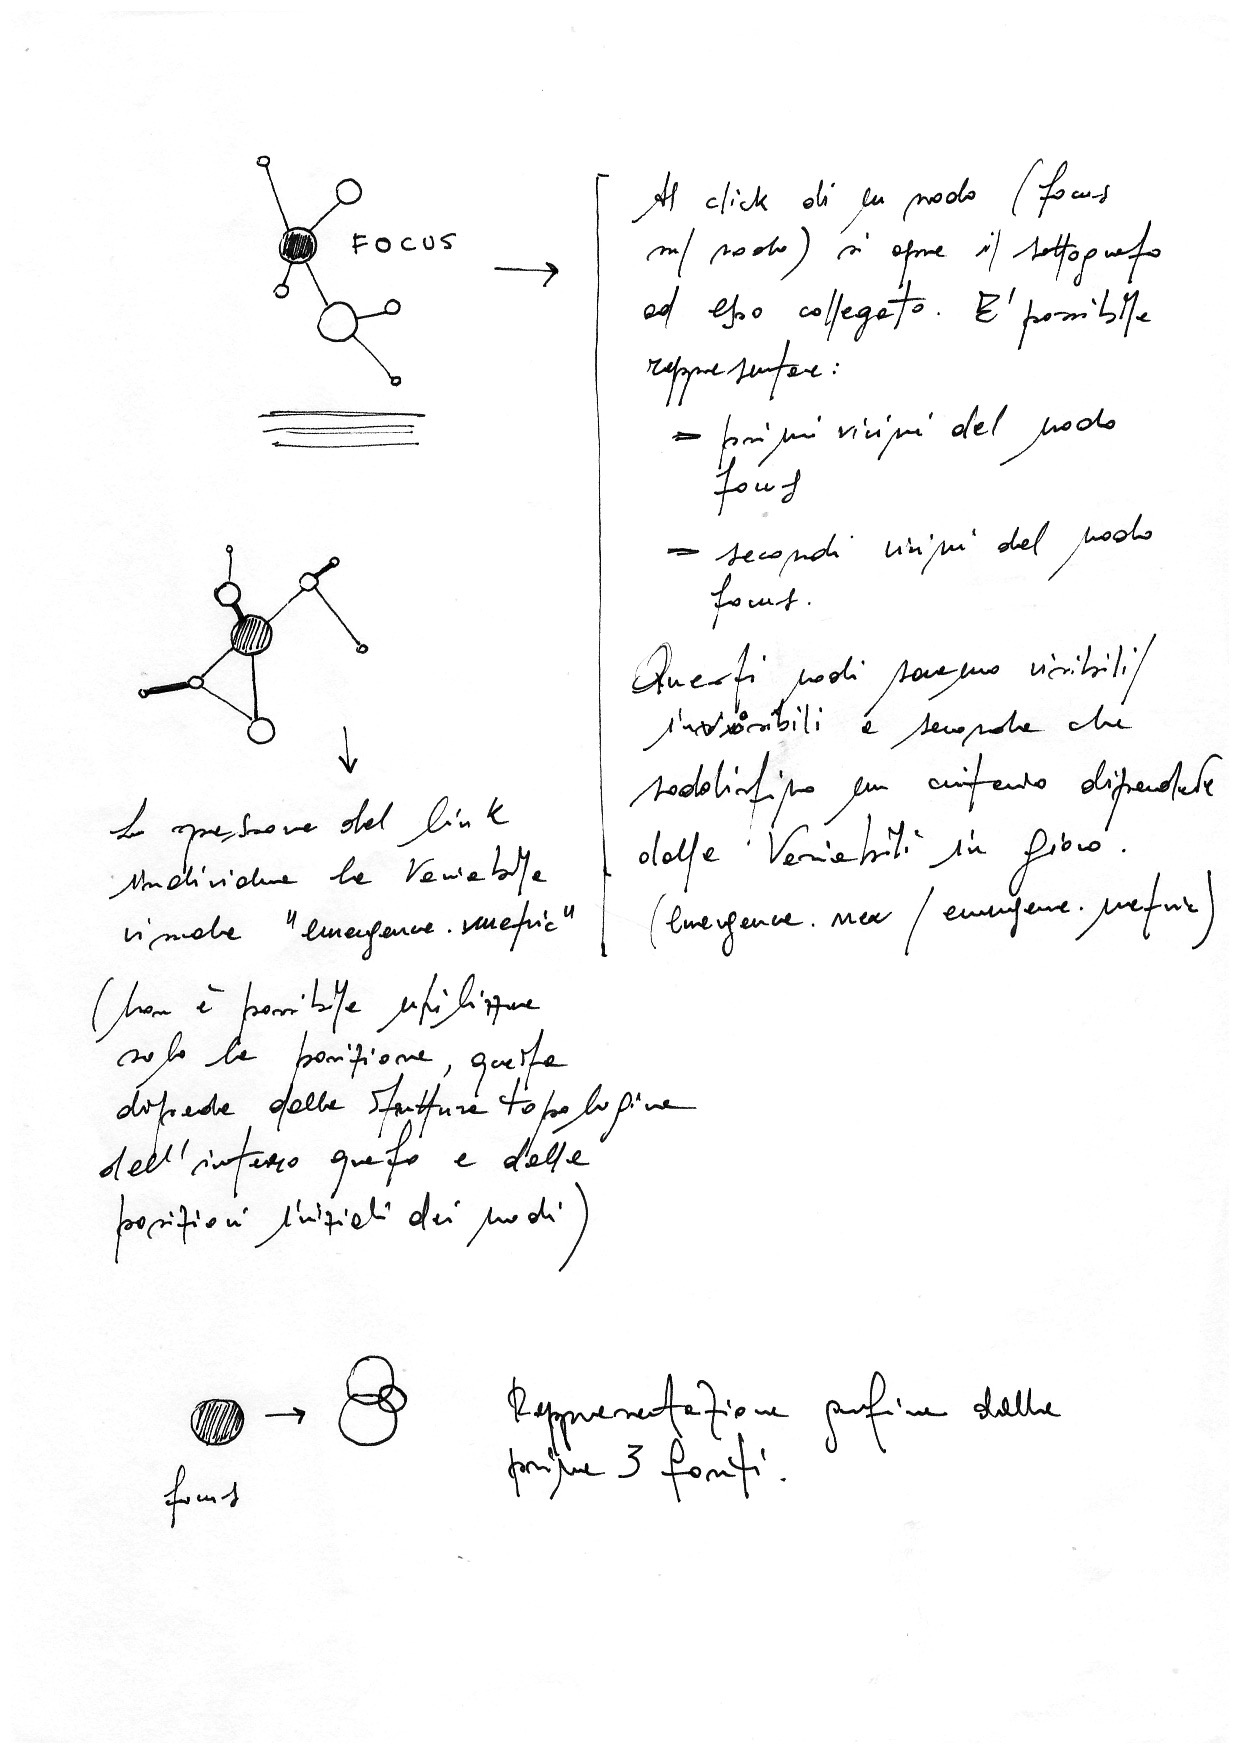 FOCUS
Al click di un nodo (focus
sul nodo) si apre il sottografo
ad esso collegato. E' possibile
rappresentare:
- primi vicini del nodo
focus
- secondi vicini del nodo
focus.
Questi nodi saranno visibili/
invisibili a seconda che
soddisfino un criterio dipendente
dalle variabili in gioco.
(emergence. max / emergence. metric)
Lo spessore del link
individua la variabile
visuale "emergence. metric"
(non è possibile utilizzare
solo la posizione, questa
dipende dalla struttura topologica
dell'intero grafo e dalle
posizioni iniziali dei nodi)
focus
Rappresentazione grafica delle
prime 3 fonti.